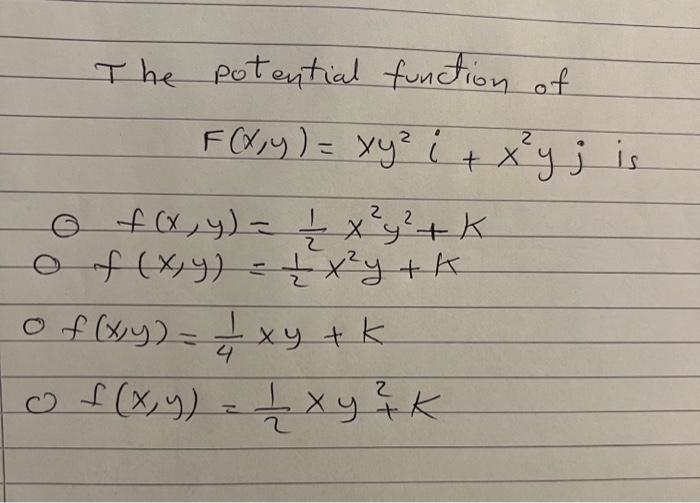 The potential function of
F(x,y) = xy² i + x²y j is
○ f(x,y) = 1/2 x²y² + K
○ f(x,y) = 1/2 x²y + K
○ f(x,y) = 1/4 xy + K
○ f(x,y) = 1/2 xy² + K